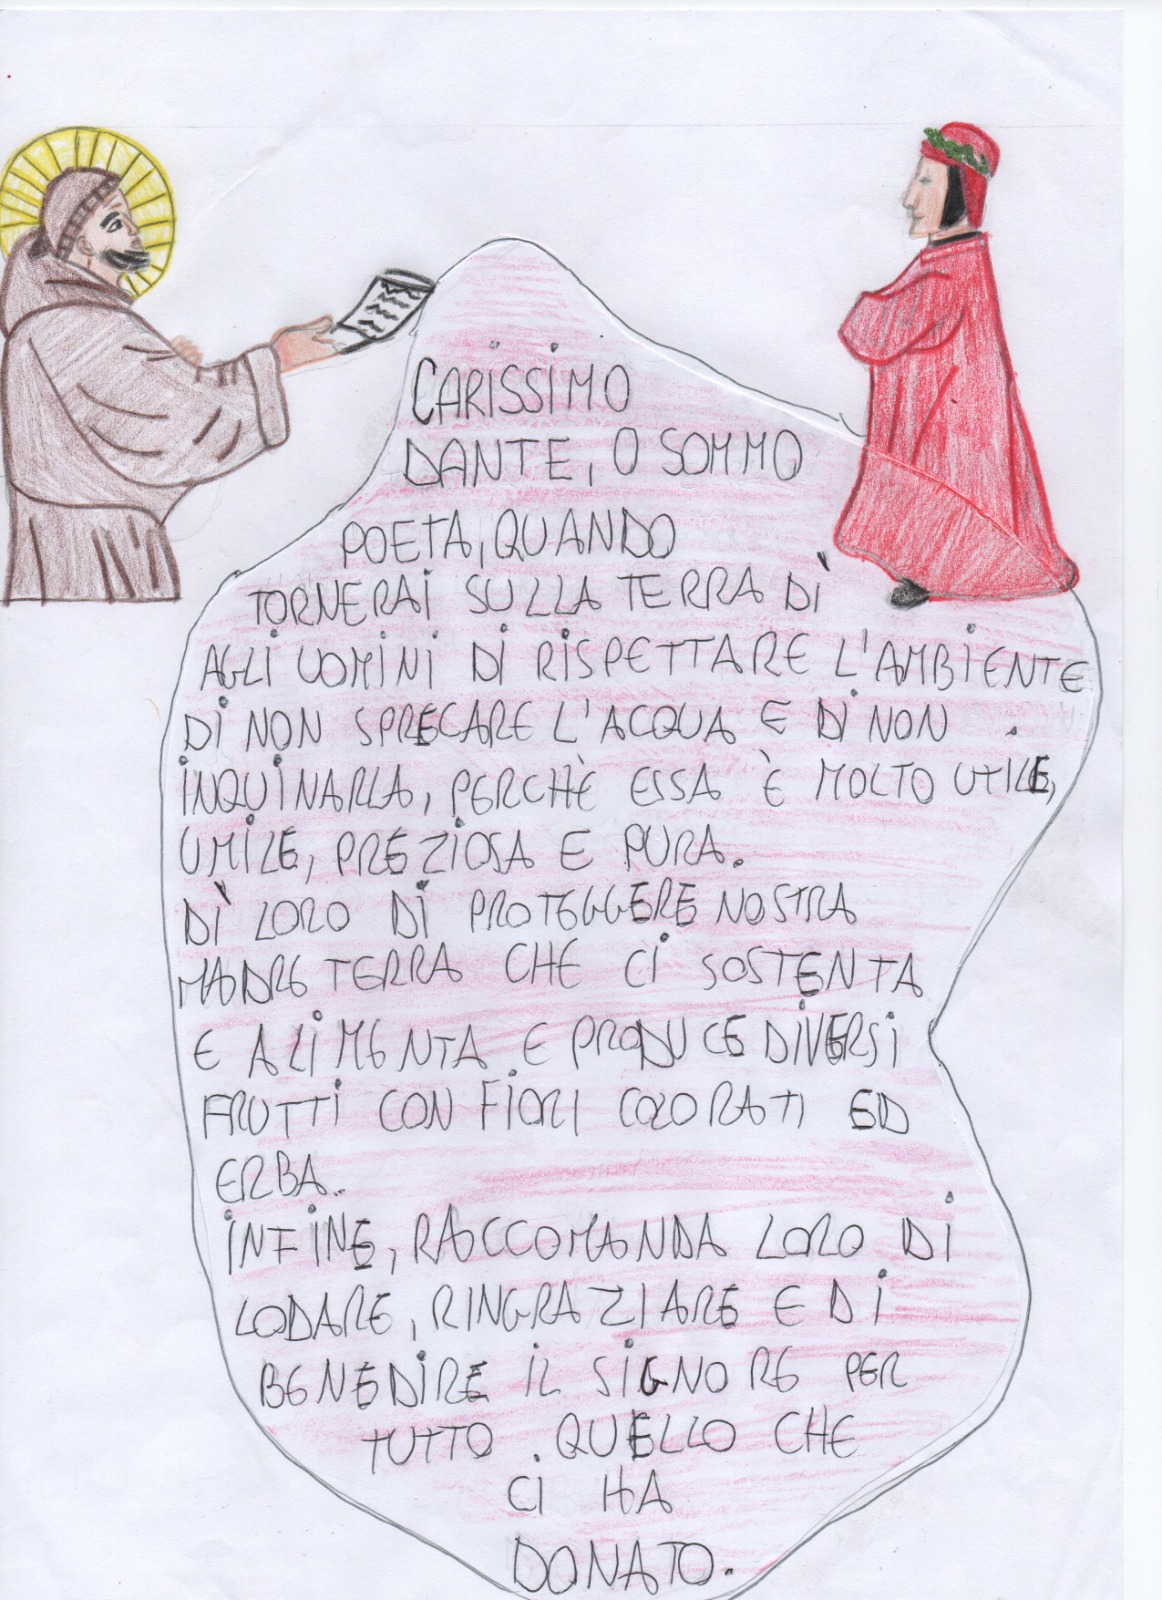 CARISSIMO
DANTE, O SOMMO
POETA, QUANDO
TORNERAI SULLA TERRA DÌ
AGLI UOMINI DI RISPETTARE L'AMBIENTE
DI NON SPRECARE L'ACQUA E DI NON
INQUINARLA, PERCHÈ ESSA È MOLTO UTILE,
UMILE, PREZIOSA E PURA.
DÌ LORO DI PROTEGGERE NOSTRA
MADRE TERRA CHE CI SOSTENTA
E ALIMENTA E PRODUCE DIVERSI
FRUTTI CON FIORI COLORATI ED
ERBA.
INFINE, RACCOMANDA LORO DI
LODARE, RINGRAZIARE E DI
BENEDIRE IL SIGNORE PER
TUTTO QUELLO CHE
CI HA
DONATO.